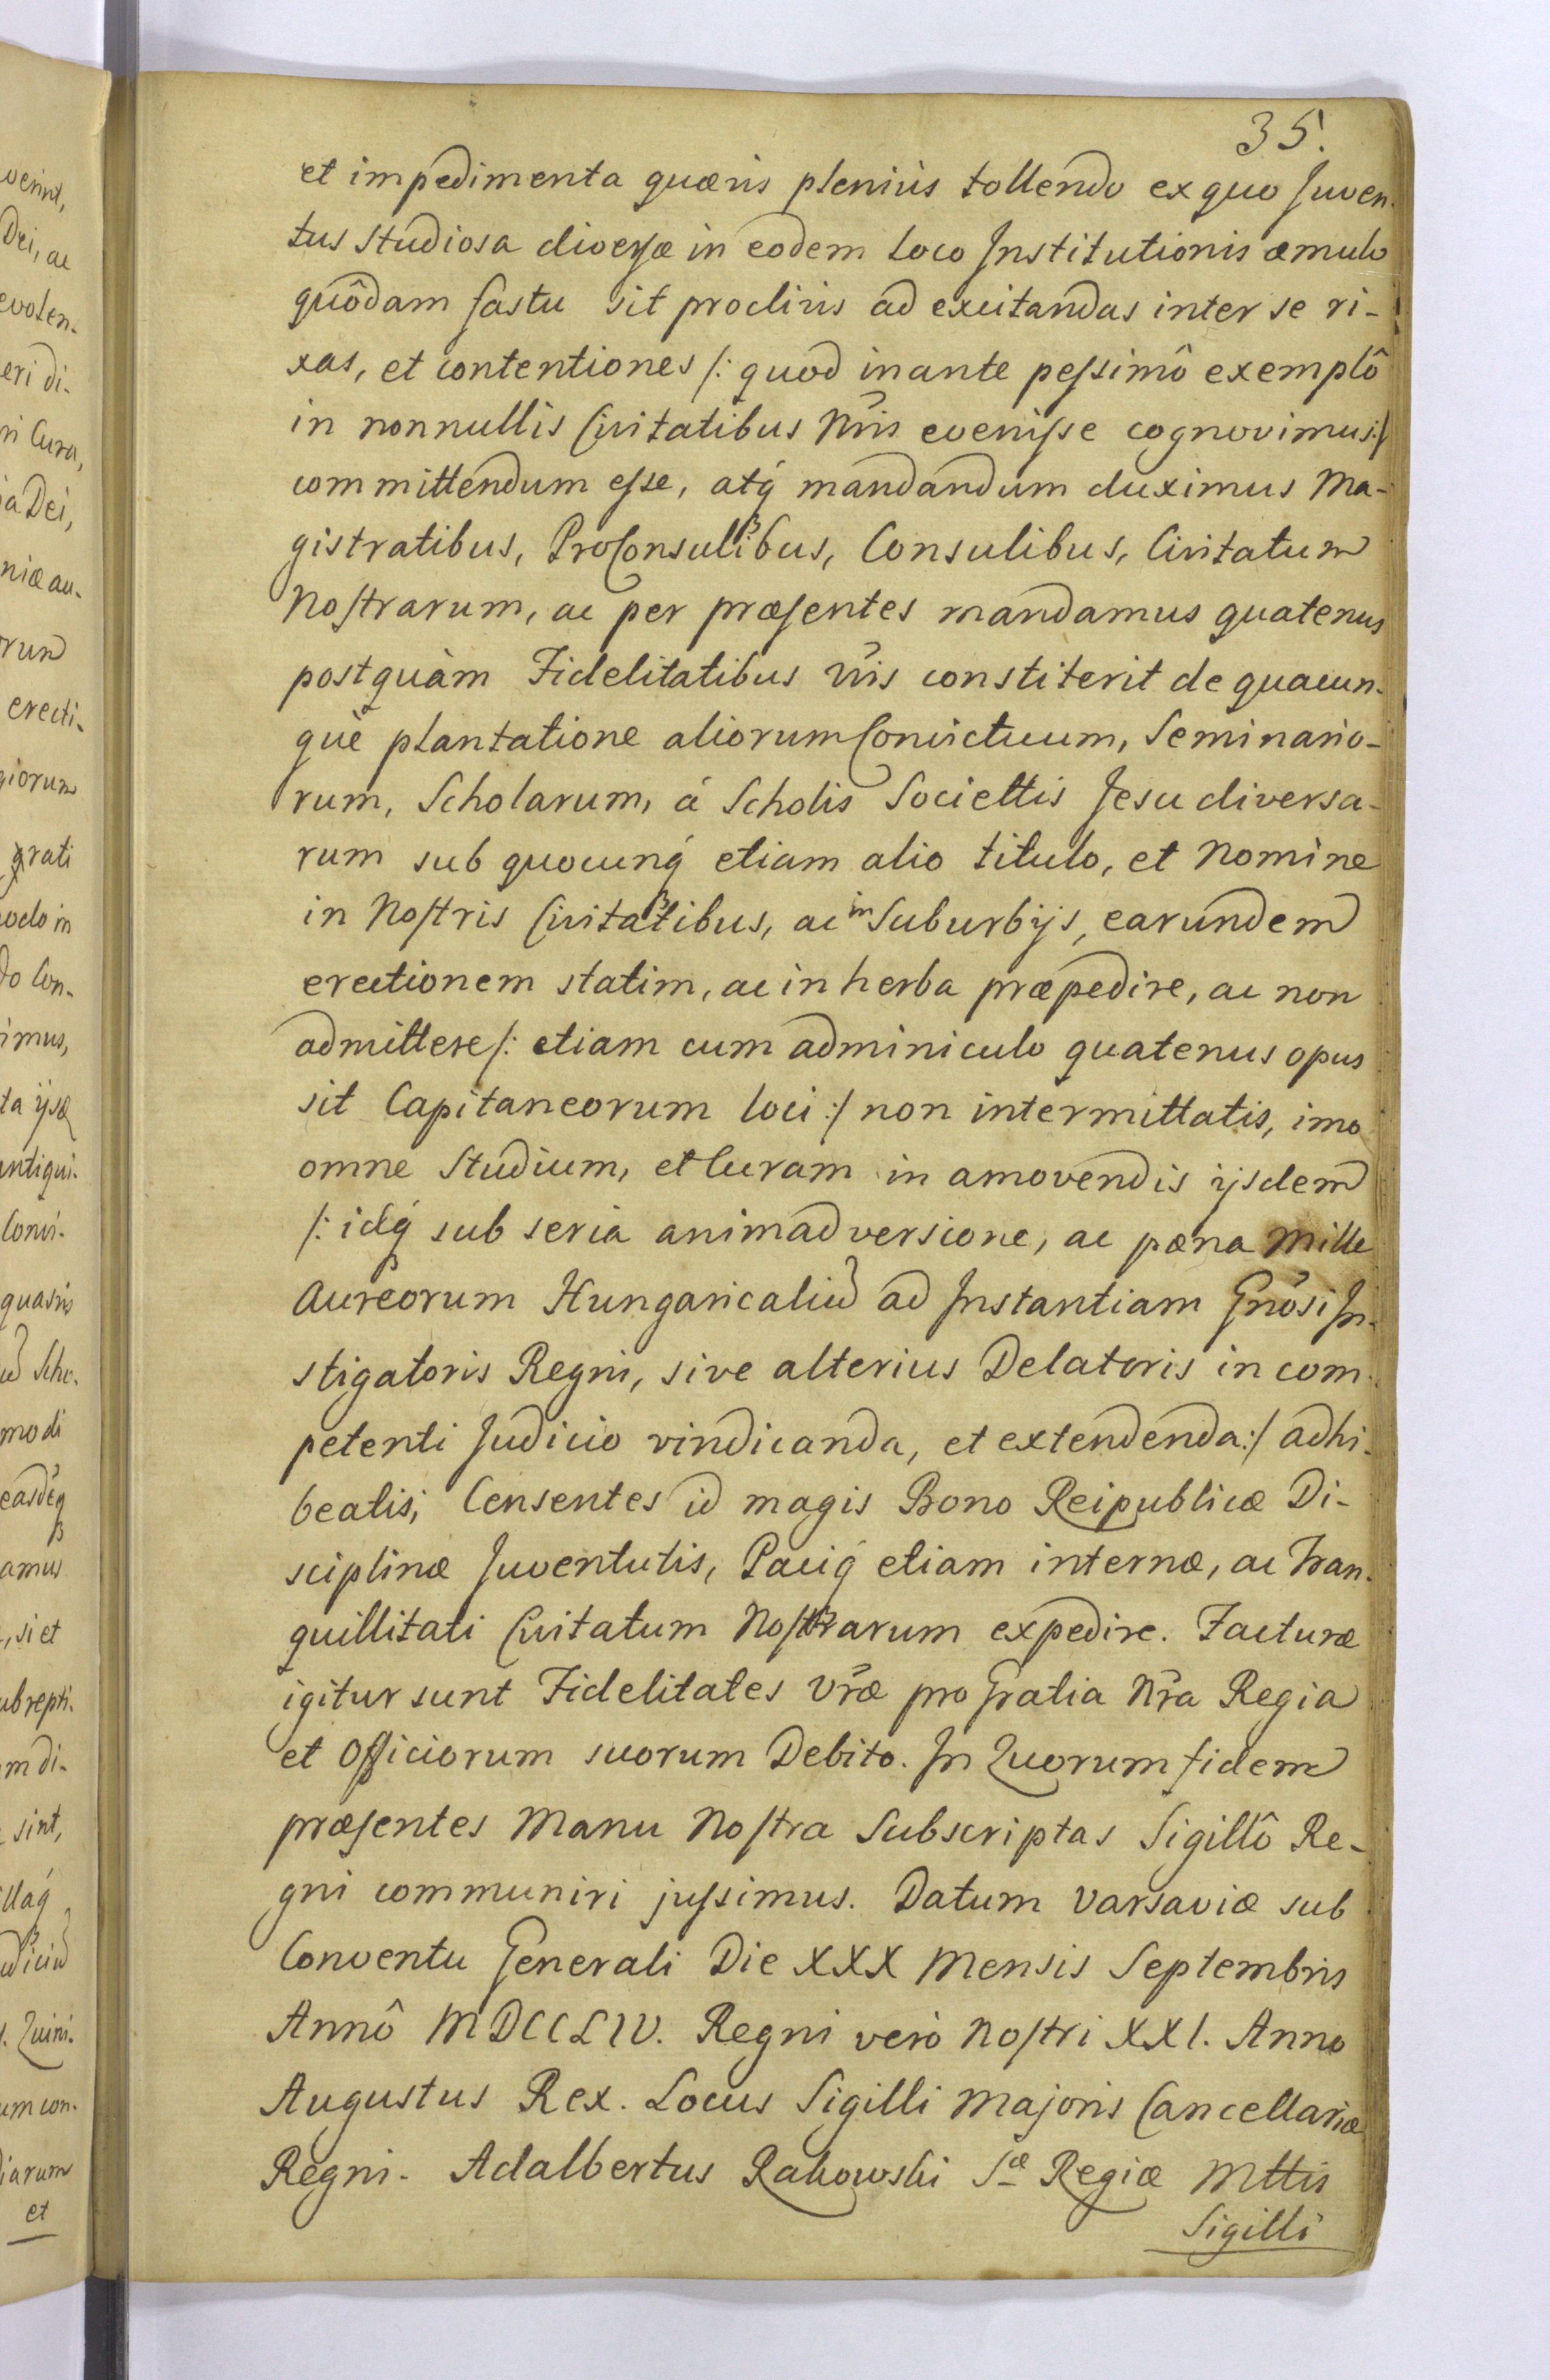 35.
et impedimenta quævis pleniùs tollendo ex quo Juven-
tus Studiosa diversæ in eodem Loco Institutionis æmulo
quôdam fastu sit proclivis ad excitandas inter se ri-
xas, et contentiones /: quod inante pessimô exemplô
in nonnullis Civitatibus Nr̃is evenisse cognovimus :/
committendum esse, atq́ mandandum duximus Ma-
gistratibus, ProConsulibus, Consulibus, Civitatum
Nostrarum, ac per præsentes mandamus quatenus
postquàm Fidelitatibus Vr̃is constiterit de quacun-
què plantatione aliorum Convictuum, Seminario-
rum, Scholarum, á Scholis Societtis Jesu diversa-
rum sub quocunq́ etiam alio titulo, et Nomine
in Nostris Civitatibus, ac in Suburbijs, earundem
erectionem statim, ac in herba præpedire, ac non
admittere /: etiam cum adminiculo quatenus opus
sit Capitaneorum loci :/ non intermittatis, imo
omne Studium, et Curam in amovendis ijsdem
/: idq́ sub seria animadversione, ac pæna Mille
Aureorum Hungaricaliũ ad Instantiam Gnõsi In-
stigatoris Regni, sive alterius Delatoris in com-
petenti Judicio vindicanda, et extendenda :/ adhi-
beatis; Censentes id magis Bono Reipublicæ Di-
sciplinæ Juventutis, Paciq́ etiam internæ, ac Tran-
quillitati Civitatum Nostrarum expedire. Facturæ
igitur sunt Fidelitates Vr̃æ pro Gratia Nr̃a Regia
et Officiorum suorum Debito. In Quorum fidem
præsentes Manu Nostra Subscriptas Sigillô Re-
gni communiri jussimus. Datum Varsaviæ sub
Conventu Generali Die XXX Mensis Septembris
Annô MDCCLIV. Regni verò Nostri XXI. Anno
Augustus Rex. Locus Sigilli Majoris Cancellariæ
Regni. Adalbertus Rakowski Sæ Regiæ Mttis
Sigilli